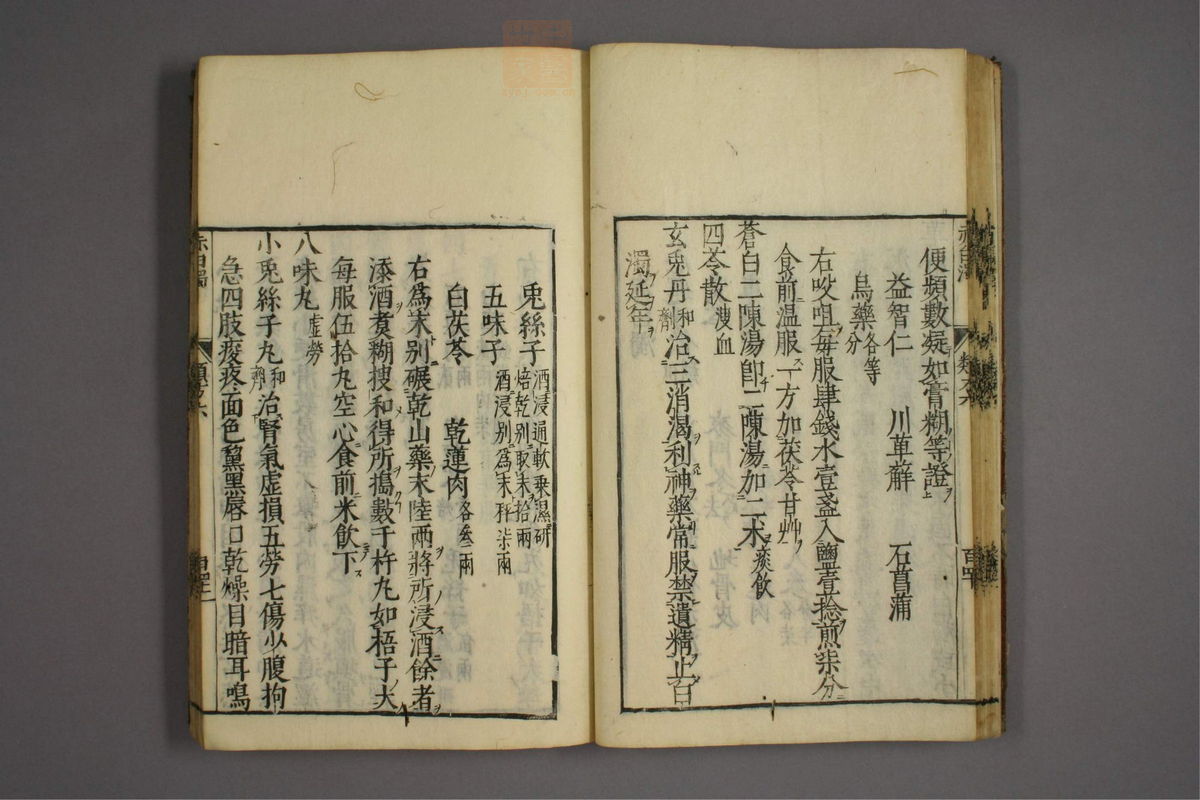 便頻數凝如膏糊等證
益智仁　川萆薢　石菖蒲
烏藥各等分
右㕮咀每服肆錢水壹盞入鹽壹捻煎柒分
食前温服一方加茯苓甘艸
蒼白二陳湯即二陳湯加二朮痰飲
四苓散溲血
玄兎丹和劑治三消渴利神藥常服禁遺精止白
濁延年
兎絲子酒浸通軟乗濕研焙乾别取末拾兩
五味子酒浸别爲末秤柒兩
白茯苓　乾蓮肉各叁兩
右爲末别碾乾山藥末陸兩將所浸酒餘者
添酒煮糊搜和得所搗數千杵丸如梧子大
每服伍拾丸空心食前米飲下
八味丸虚勞
小兎絲子丸和劑治腎氣虚損五勞七傷少腹拘
急四肢痠疼面色黧黑唇口乾燥目暗耳鳴